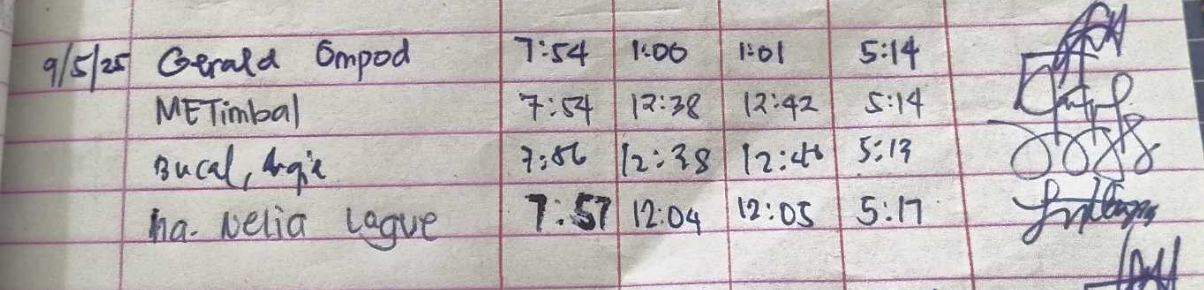 9/5/25 Gerald Ompod 7:54 1:00 1:01 5:14
METimbal 7:54 12:38 12:42 5:14
Bucal, Angie 7:56 12:38 12:40 5:13
Ma. Nelia Lague 7:57 12:04 12:05 5:17